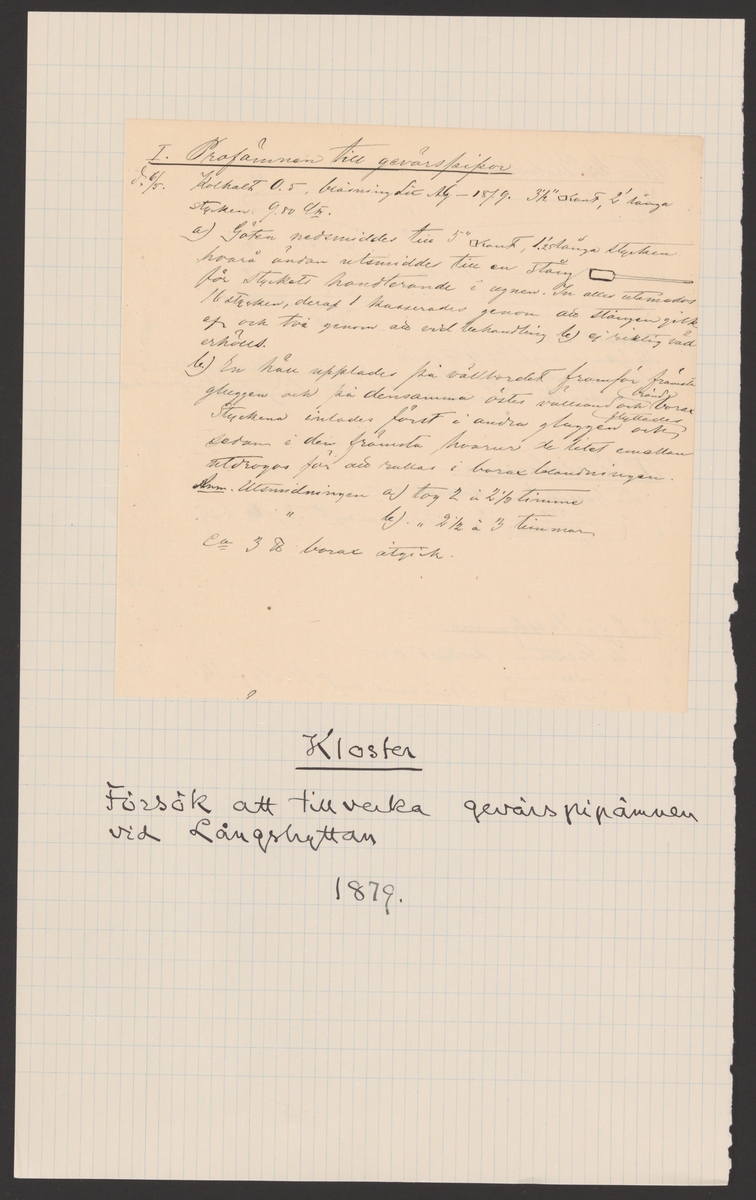 I. Profämnen till gevärspipor
d. 6/5. Kolhalt 0.5, 1879. 3½" kant, 2' långa
stycken.
a) Göten nedsmiddes till 5" kant, långa stycken
hvarå ändan utsmiddes till en stång
för styckets handterande i ugnen. In alles utsmiddes
16 stycken, deraf 1 kasserades genom att stången gick
af och två genom att vid behandling b) ej riktig väll
erhölls.
b) En häll upplades på vällbordet framför främsta
gluggen och på densamma östes vällsand och bränd borax
Styckena inlades först i andra gluggen och flyttades
sedan i den främsta hvarur de litet emellan
utdrogos för att rullas i boraxblandningen.
Anm. Utsmidningen a) tog 2 à 2½ timme
" b) " 2½ à 3 timmar
Ca 3 ℔ borax åtgick.
Kloster
Försök att tillverka gevärspipämnen
vid Långshyttan
1879.